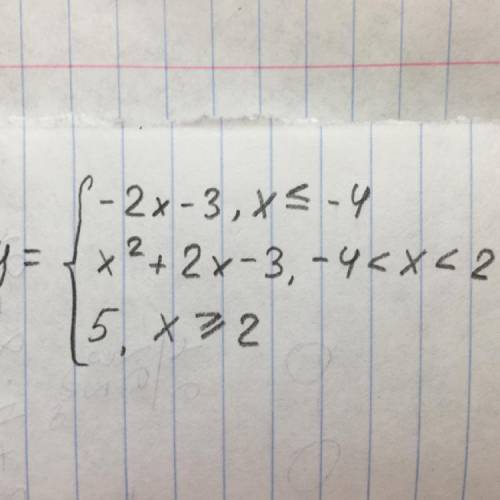 -2x-3, x ≤ -4
y = { x² + 2x - 3, -4 < x < 2
5, x ≥ 2